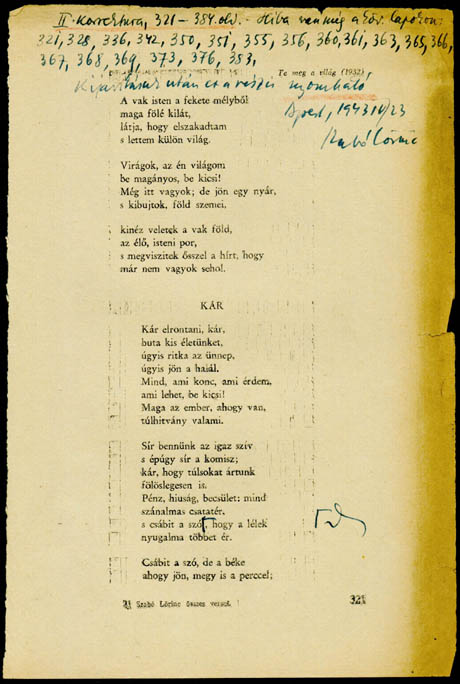 II. korrektura, 321 – 384. old. – Hiba van még a köv. lapokon:
321, 328, 336, 342, 350, 351, 355, 356, 360, 361, 363, 365, 366,
367, 368, 369, 373, 376, 383,
Te meg a világ (1932)
Kijavítások után ez a rész nyomható
Bpest, 1943 IV/23
Szabó Lőrinc
A vak isten a fekete mélyből
maga fölé kilát,
látja, hogy elszakadtam
s lettem külön világ.
Virágok, az én világom
be magányos, be kicsi!
Még itt vagyok; de jön egy nyár,
s kibujtok, föld szemei,
kinéz veletek a vak föld,
az élő, isteni por,
s megviszitek ősszel a hírt, hogy
már nem vagyok sehol.
KÁR
Kár elrontani, kár,
buta kis életünket,
úgyis ritka az ünnep,
úgyis jön a halál.
Mind, ami konc, ami érdem,
ami lehet, be kicsi!
Maga az ember, ahogy van,
túlhitvány valami.
Sír bennünk az igaz szív
s épúgy sír a komisz;
kár, hogy túlsokat ártunk
fölöslegesen is.
Pénz, hiuság, becsület: mind
szánalmas csatatér,
s csábit a szó, hogy a lélek
nyugalma többet ér.
Csábit a szó, de a béke
ahogy jön, megy is a perccel;
21 Szabó Lőrinc összes versei
321